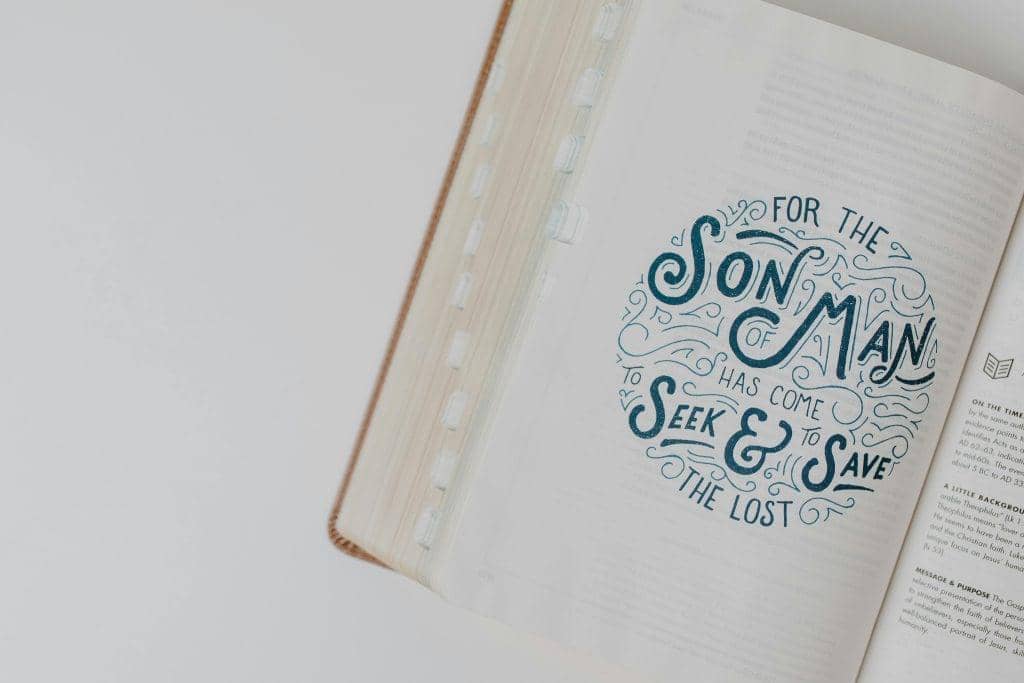 FOR THE
SON
OF MAN
HAS COME
TO SEEK & TO SAVE
THE LOST
ON THE TIME
by the same
evidence points
identifies Acts as a
AD 62–63,
to mid-60s. The
about 5 BC to AD 33
A LITTLE
orable Theophilus" (Lk 1
Theophilus means "lover
He seems to have been a
and the Christian faith. Luke
unique focus on Jesus'
(Is 53).
MESSAGE & PURPOSE The
selective presentation of the
to strengthen the faith of believers
of unbelievers, especially those
well-balanced portrait of Jesus,
humanity.